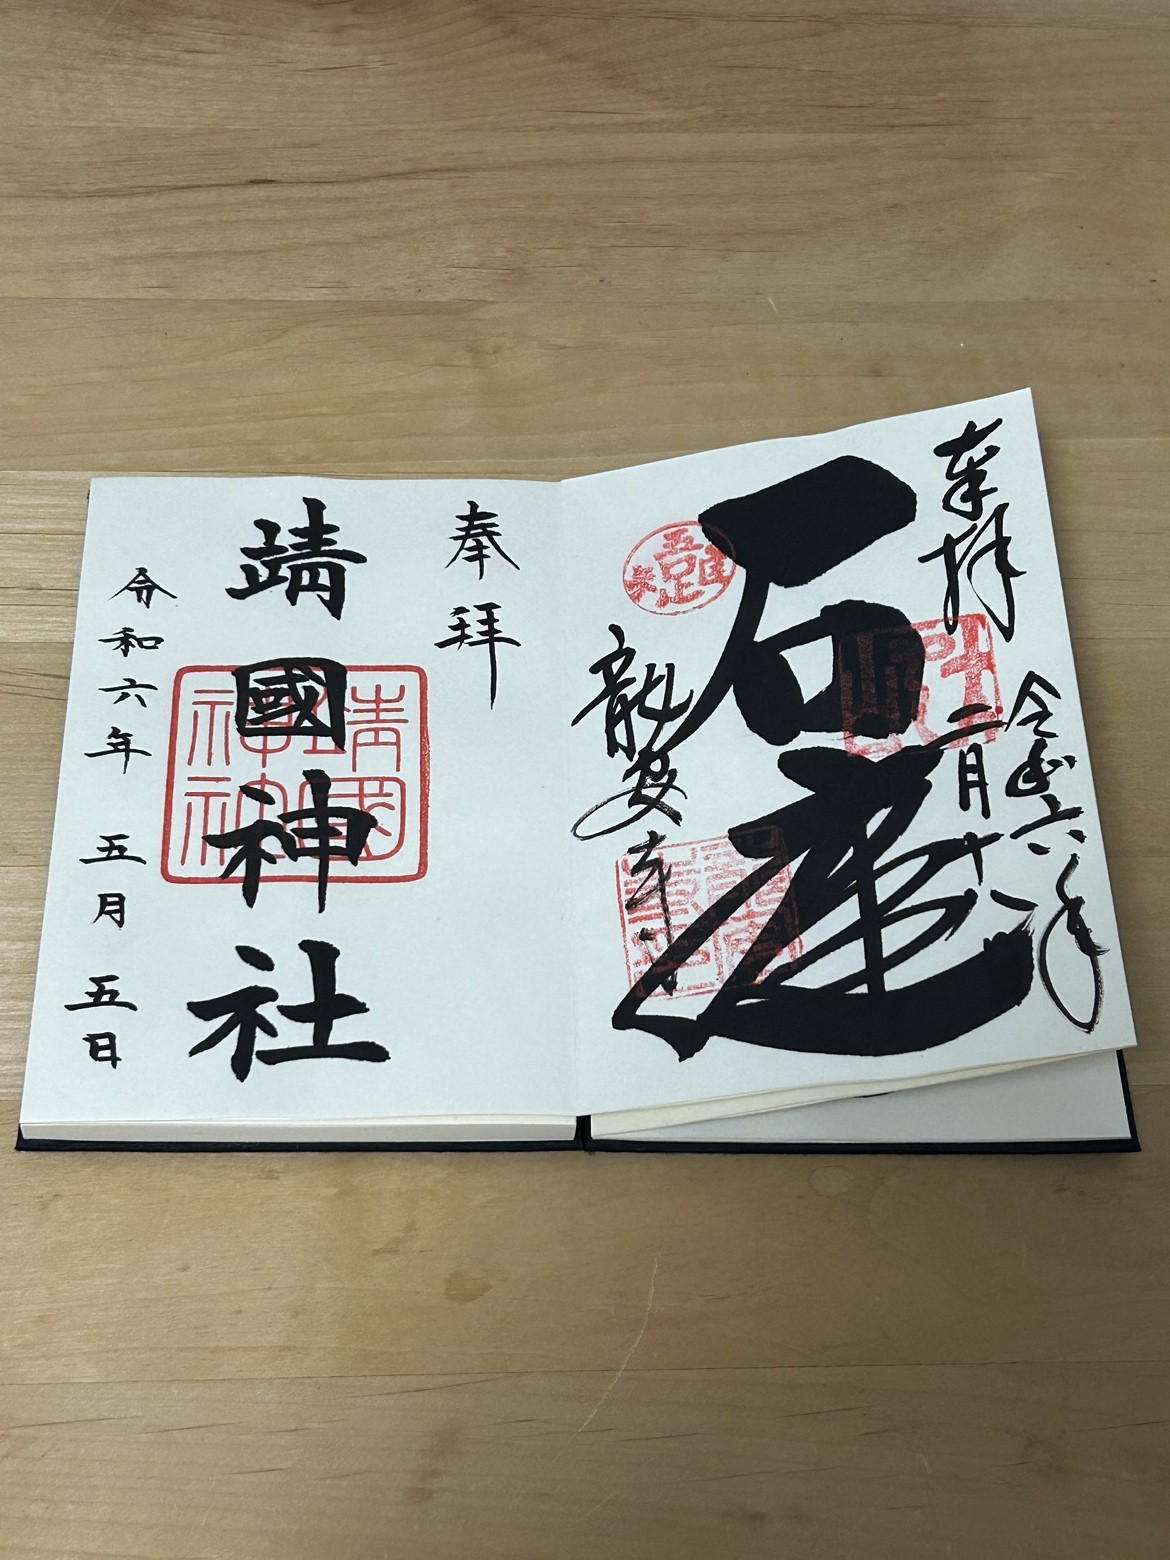 奉拝
令和六年
二月十八
石庭
吾唯足知
龍安寺
奉拝
靖國神社
靖國
神社
令和六年 五月 五日